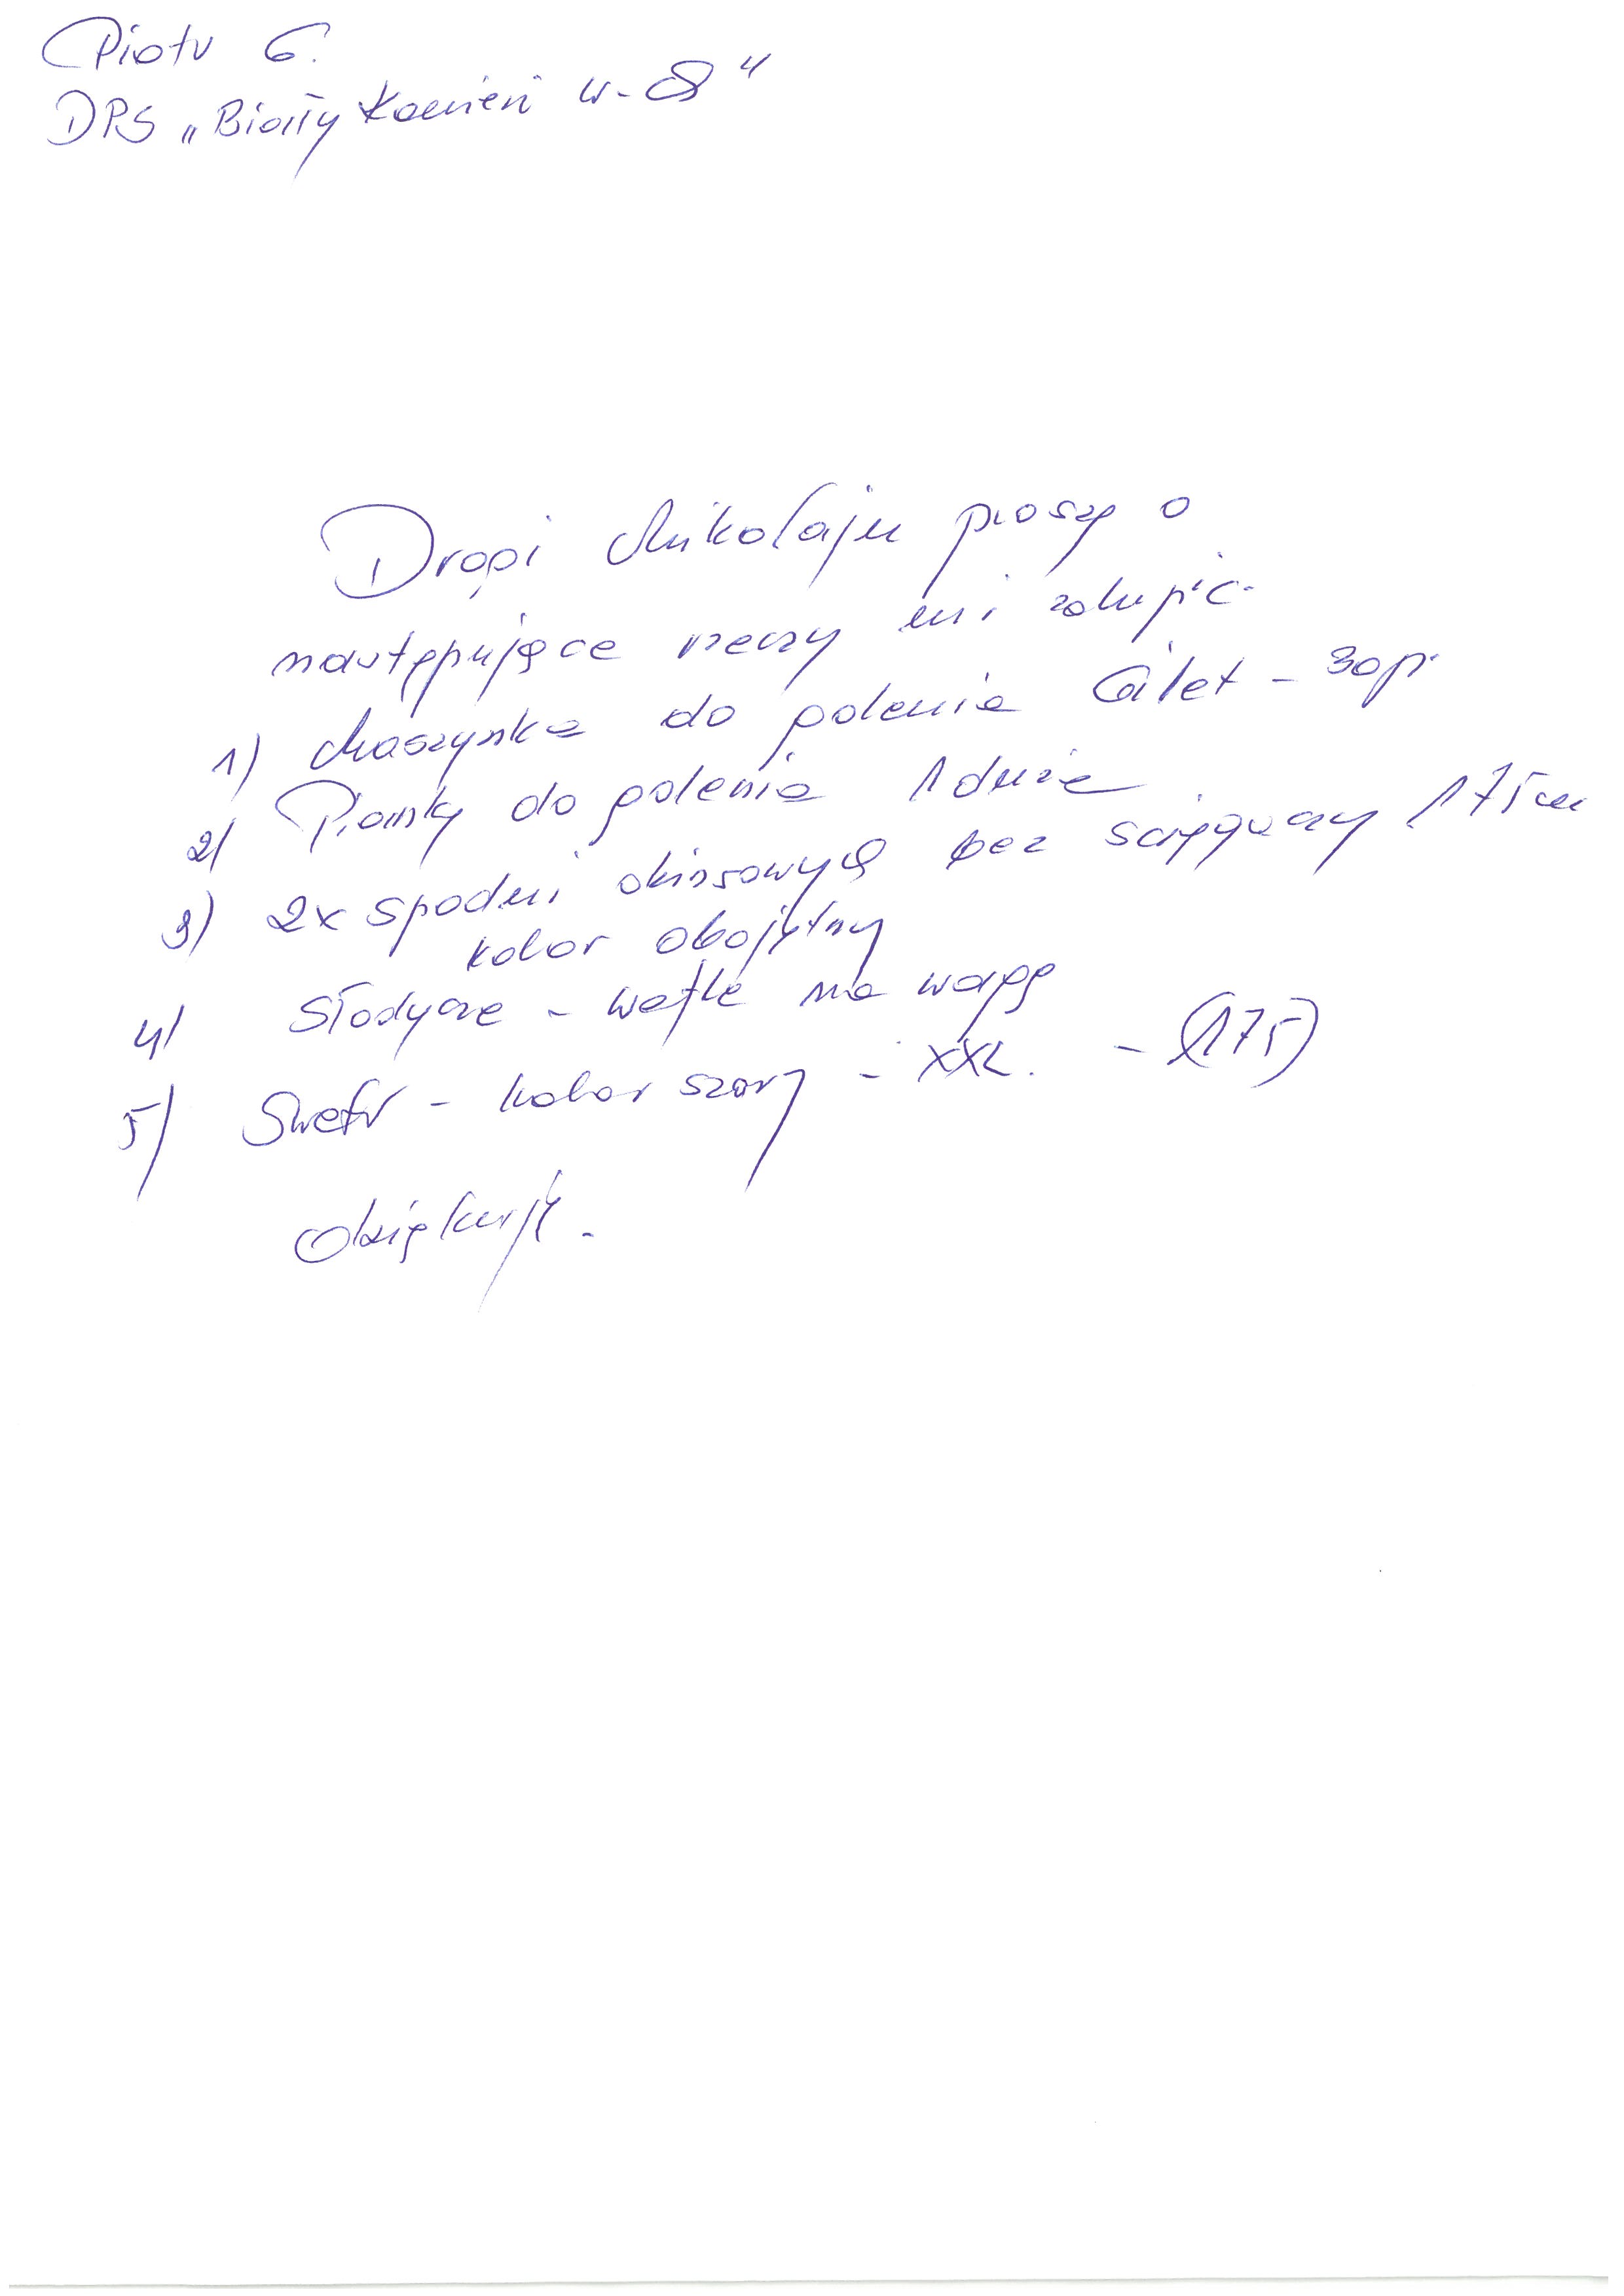 Piotr G.
DPS „Biały Kamień w-8"
Drogi Mikołaju proszę o
następujące rzeczy mi zakupić.
1) Maszynka do golenia Gilet - 30 p.
2) Pianky do golenia 1 duże
3) 2x spodni dinsowych bez ściągaczy 175 cm
kolor obojętny
4) Słodycze - wafle na wagę
5) Swetr - kolor szary - XXL. - (175)
dziękuję.